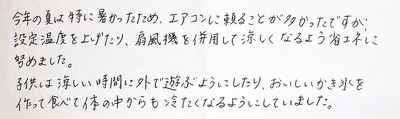 今年の夏は特に暑かったため、エアコンに頼ることが多かったですが、
設定温度を上げたり、扇風機を併用して涼しくなるよう省エネに
努めました。
子供は涼しい時間に外で遊ぶようにしたり、おいしいかき氷を
作って食べて体の中からも冷たくなるようにしていました。